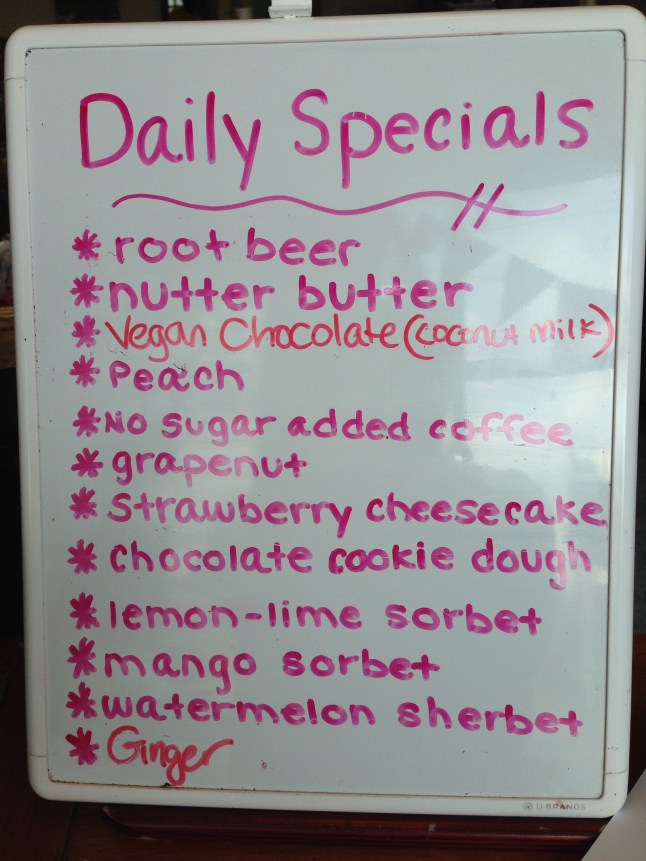 Daily Specials
* root beer
* nutter butter
* Vegan Chocolate (coconut milk)
* Peach
* No sugar added coffee
* grapenut
* Strawberry cheesecake
* Chocolate cookie dough
* lemon-lime sorbet
* mango sorbet
* watermelon sherbet
* Ginger
U BRANDS